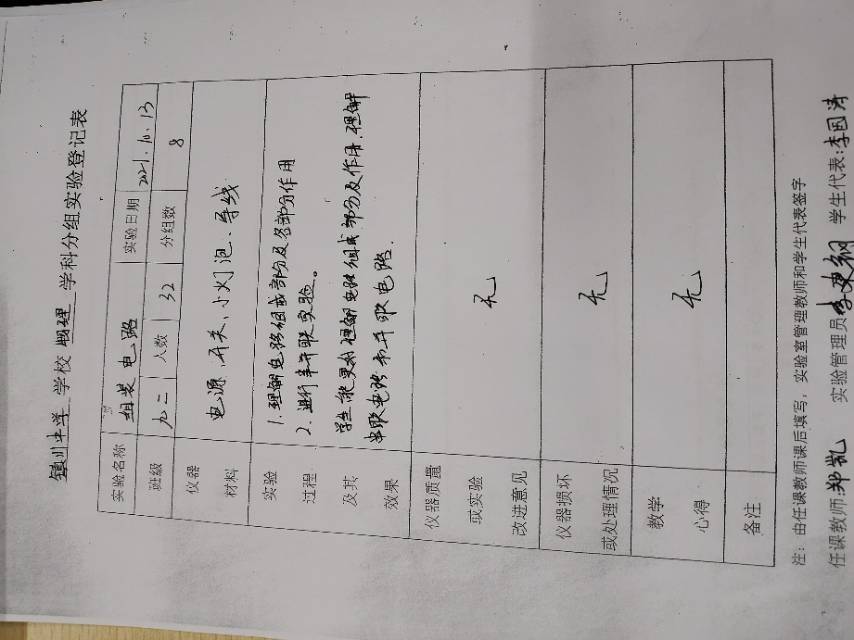 镇川中学 学校 物理 学科分组实验登记表
实验名称 组装电路 实验日期 2021.10.13
班级 九二 人数 32 分组数 8
仪器材料 电源、开关、小灯泡、导线
实验过程及其效果
1. 理解电路组成部分及各部分作用
2. 进行串并联实验。
学生能更好理解电路组成部分及作用,理解
串联电路和并联电路.
仪器质量或实验改进意见 无
仪器损坏或处理情况 无
教学心得 无
备注
注:由任课教师课后填写,实验室管理教师和学生代表签字
任课教师:郑凯 实验管理员: 学生代表:李国涛